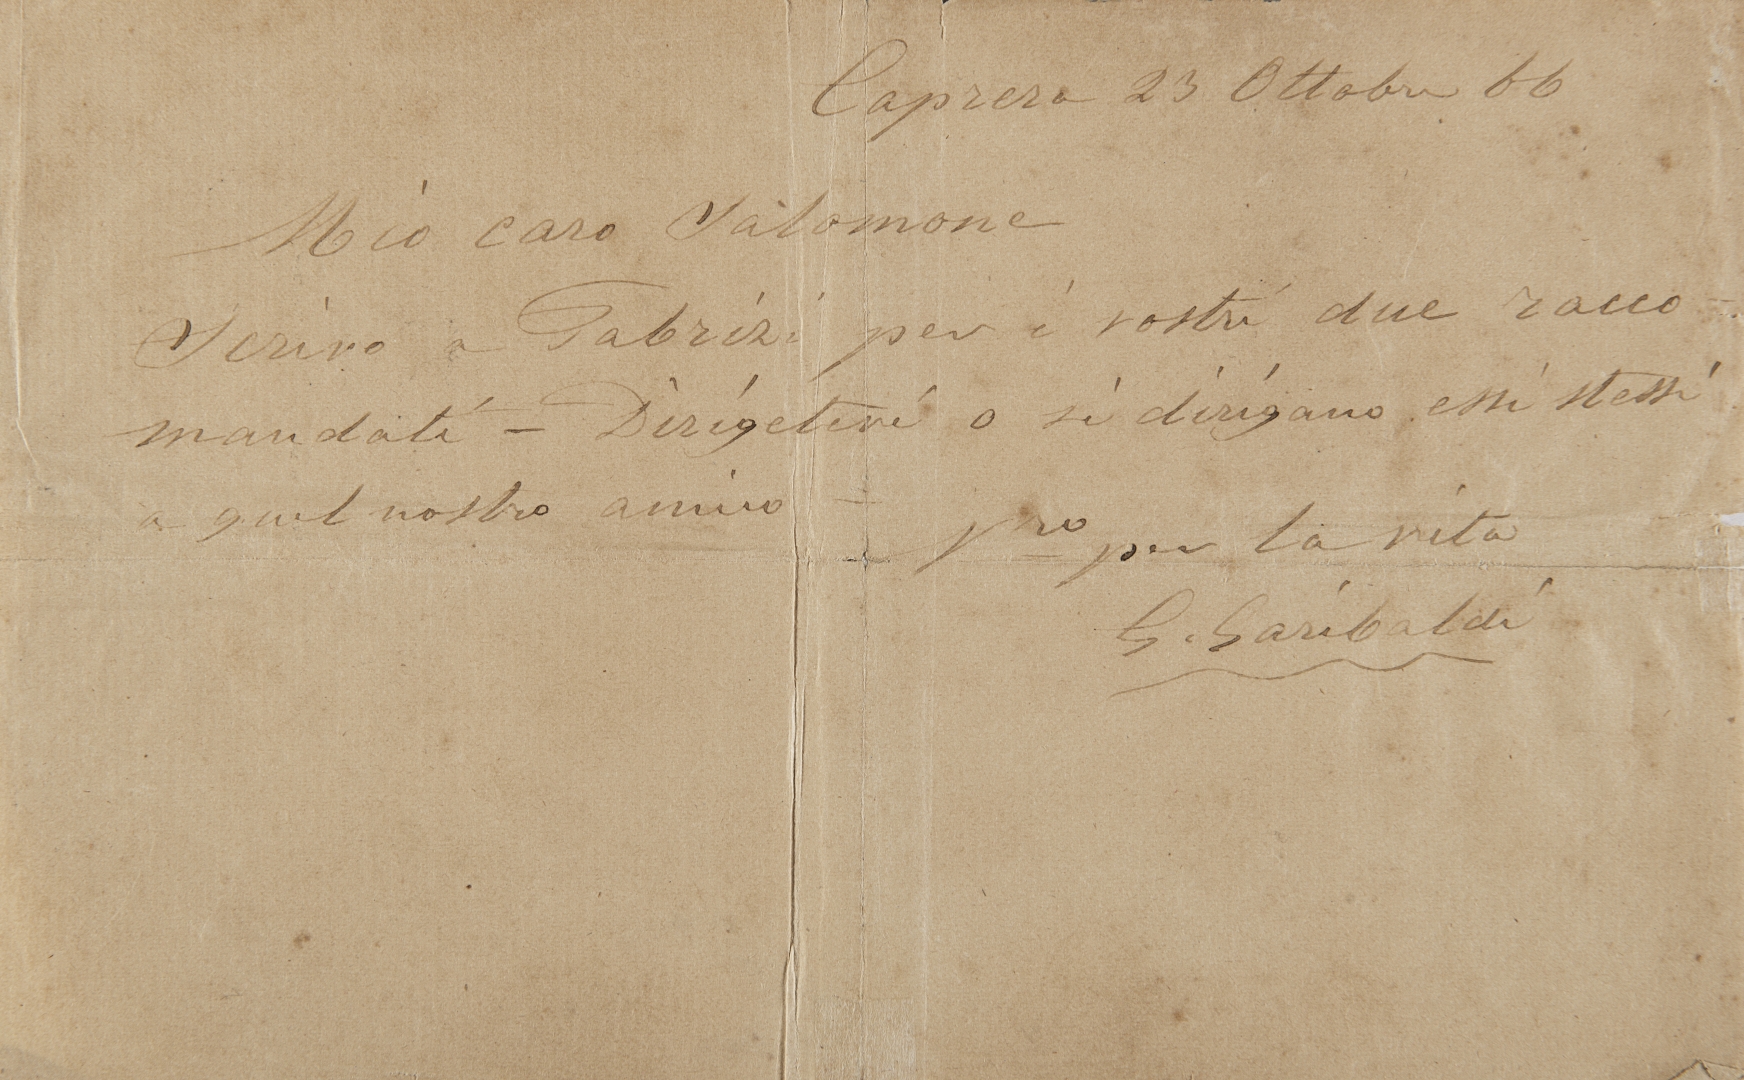 Caprera 23 Ottobre 66
Mio caro Salomone
Scrivo a Fabrizi per i vostri due racco-
mandati – Dirigetevi o si dirigano essi stessi
a quel nostro amico –
Vro per la vita
G. Garibaldi